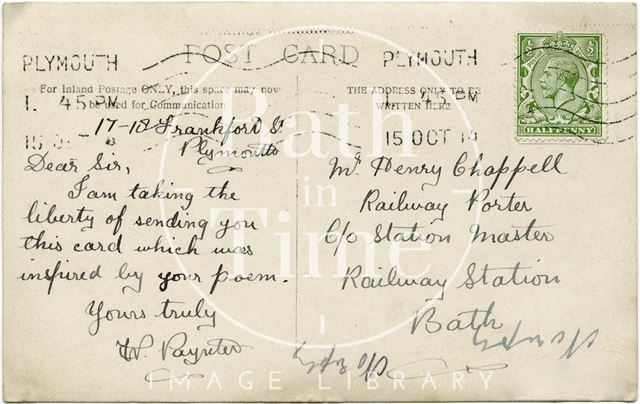 POST CARD
PLYMOUTH
1. 45 PM
PLYMOUTH
1. 45 PM
15 OCT 14
HALFPENNY
For Inland Postage ONLY, this space may now
be used for Communication
THE ADDRESS ONLY TO BE
WRITTEN HERE
17-18 Frankfort St
Plymouth
Dear Sir,
I am taking the
liberty of sending you
this card which was
inspired by your poem.
Yours truly
W. Paynter
Mr. Henry Chappell
Railway Porter
C/o Station Master
Railway Station
Bath
Bath
in
Time
IMAGE LIBRARY